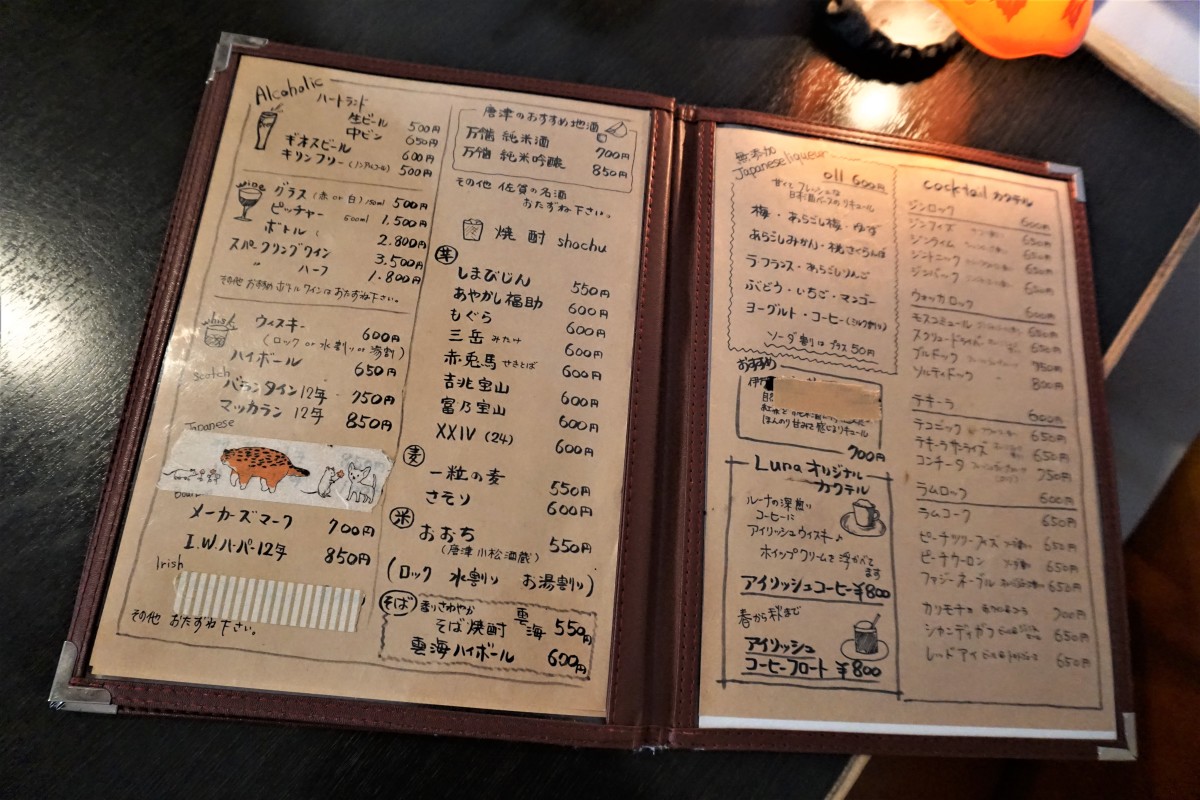 Alcoholic
ハートランド
生ビール 500円
中ビン 650円
ギネスビール 600円
キリンフリー(ノンアルコール) 500円
wine
グラス(赤 or 白)150ml 500円
ピッチャー 500ml 1.500円
ボトル 2.800円
スパークリングワイン 3.500円
〃 ハーフ 1.800円
その他 お手頃ボトルワインはおたずね下さい。
ウィスキー 600円
(ロック or 水割り or 湯割)
ハイボール 650円
Scotch
バランタイン12年 750円
マッカラン 12年 850円
Japanese
メーカーズマーク 700円
I.W.ハーパー12年 850円
Irish
その他 おたずね下さい。
唐津のおすすめ地酒
万齢 純米酒 700円
万齢 純米吟醸 850円
その他 佐賀の名酒
おたずね下さい。
焼酎 shochu
芋
しまびじん 550円
あやかし福助 600円
もぐら 600円
三岳 みたけ 600円
赤兎馬 せきとば 600円
吉兆宝山 600円
富乃宝山 600円
XXIV (24) 600円
麦
一粒の麦 550円
さそり 600円
米
おおち 550円
(唐津 小松酒蔵)
(ロック 水割り お湯割り)
そば
香りさわやか
そば焼酎 雲海 550円
雲海ハイボール 600円
無添加
Japanese liqueur
all 600円
甘くてフレッシュな
日本酒ベースのリキュール
梅・あらごし梅・ゆず
あらごしみかん・桃・さくらんぼ
ラ・フランス・あらごしりんご
ぶどう・いちご・マンゴー
ヨーグルト・コーヒー(ミルク割り)
ソーダ割りは プラス50円
おすすめ
ほんのり甘みで感じるリキュール
700円
Luna オリジナル
カクテル
ルーナの深煎り
コーヒーに
アイリッシュウィスキー♪
ホイップクリームで浮かべて
ます
アイリッシュコーヒー ¥800
春から秋まで
アイリッシュ
コーヒーフロート ¥800
cocktail カクテル
ジンロック 600円
ジンフィズ 650円
ジンライム 650円
ジントニック 650円
ジンバック 650円
ウォッカロック 600円
モスコミュール 650円
スクリュードライバー 650円
ブルドック 750円
ソルティドック 800円
テキーラ 600円
テコニック 650円
テキーラサンライズ 650円
コンチータ 750円
ラムロック 600円
ラムコーク 650円
ピーチツリーフィズ 650円
ピーチウーロン 650円
ファジーネーブル 650円
カリモーチョ 700円
シャンディガフ 650円
レッドアイ 650円